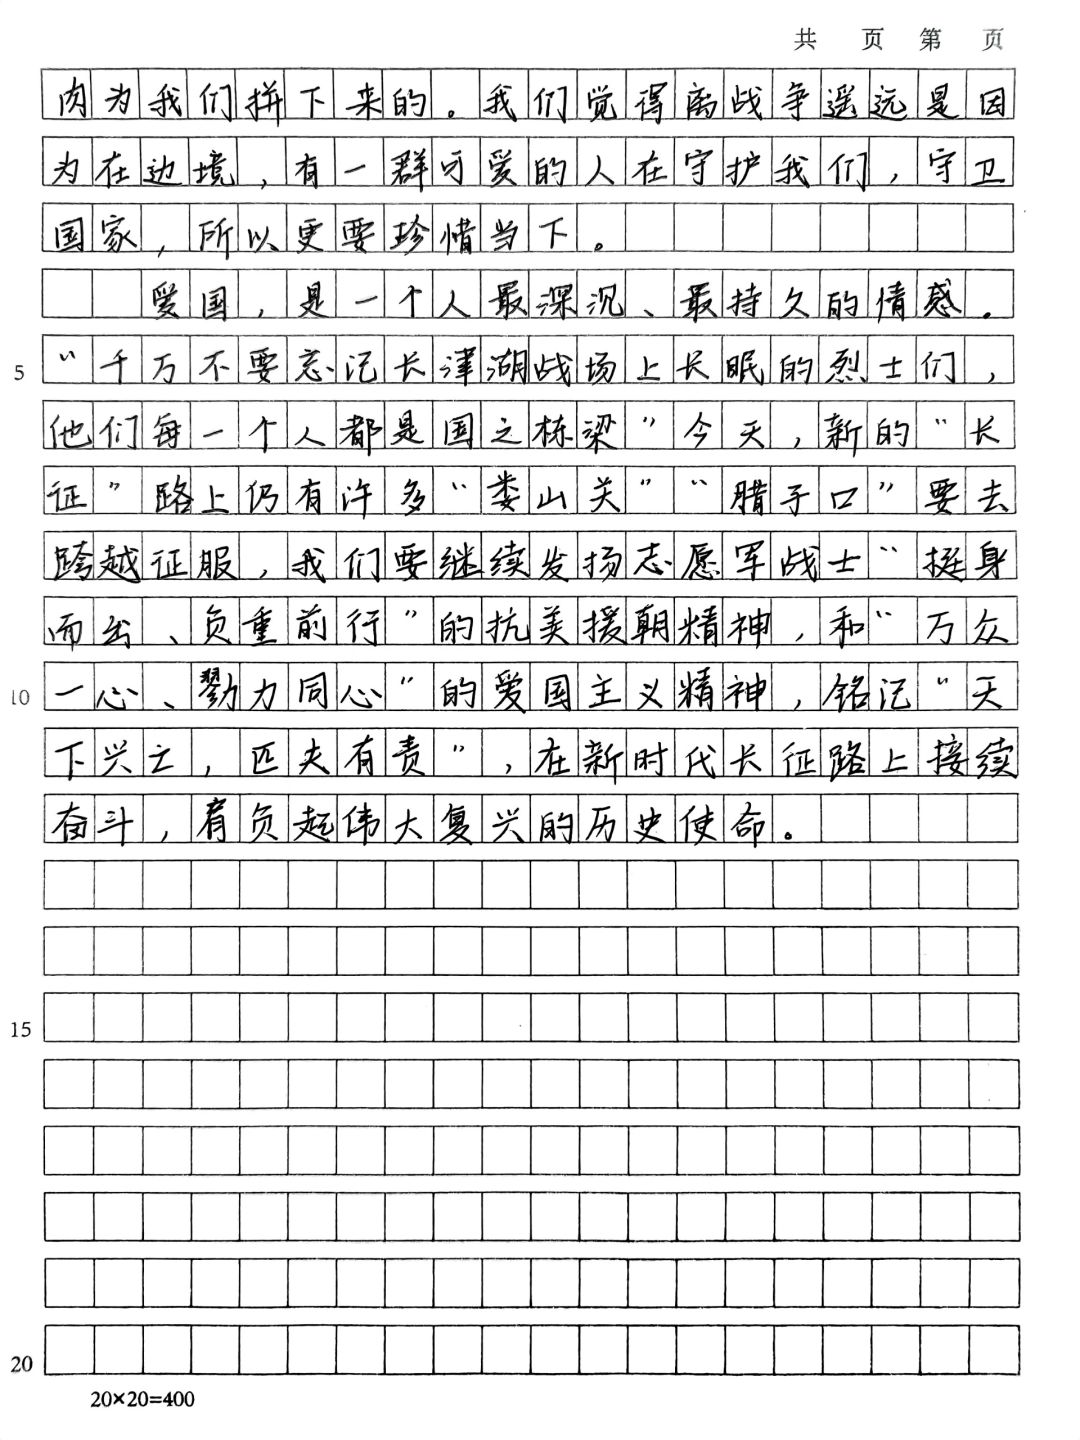 共 页 第 页
肉为我们拼下来的。我们觉得离战争遥远是因
为在边境，有一群可爱的人在守护我们，守卫
国家，所以更要珍惜当下。
爱国，是一个人最深沉、最持久的情感。
5 “千万不要忘记长津湖战场上长眠的烈士们，
他们每一个人都是国之栋梁”今天，新的“长
征”路上仍有许多“娄山关”“腊子口”要去
跨越征服，我们要继续发扬志愿军战士“挺身
而出、负重前行”的抗美援朝精神，和“万众
10 一心、勠力同心”的爱国主义精神，铭记“天
下兴亡，匹夫有责”，在新时代长征路上接续
奋斗，肩负起伟大复兴的历史使命。
15
20
20×20=400